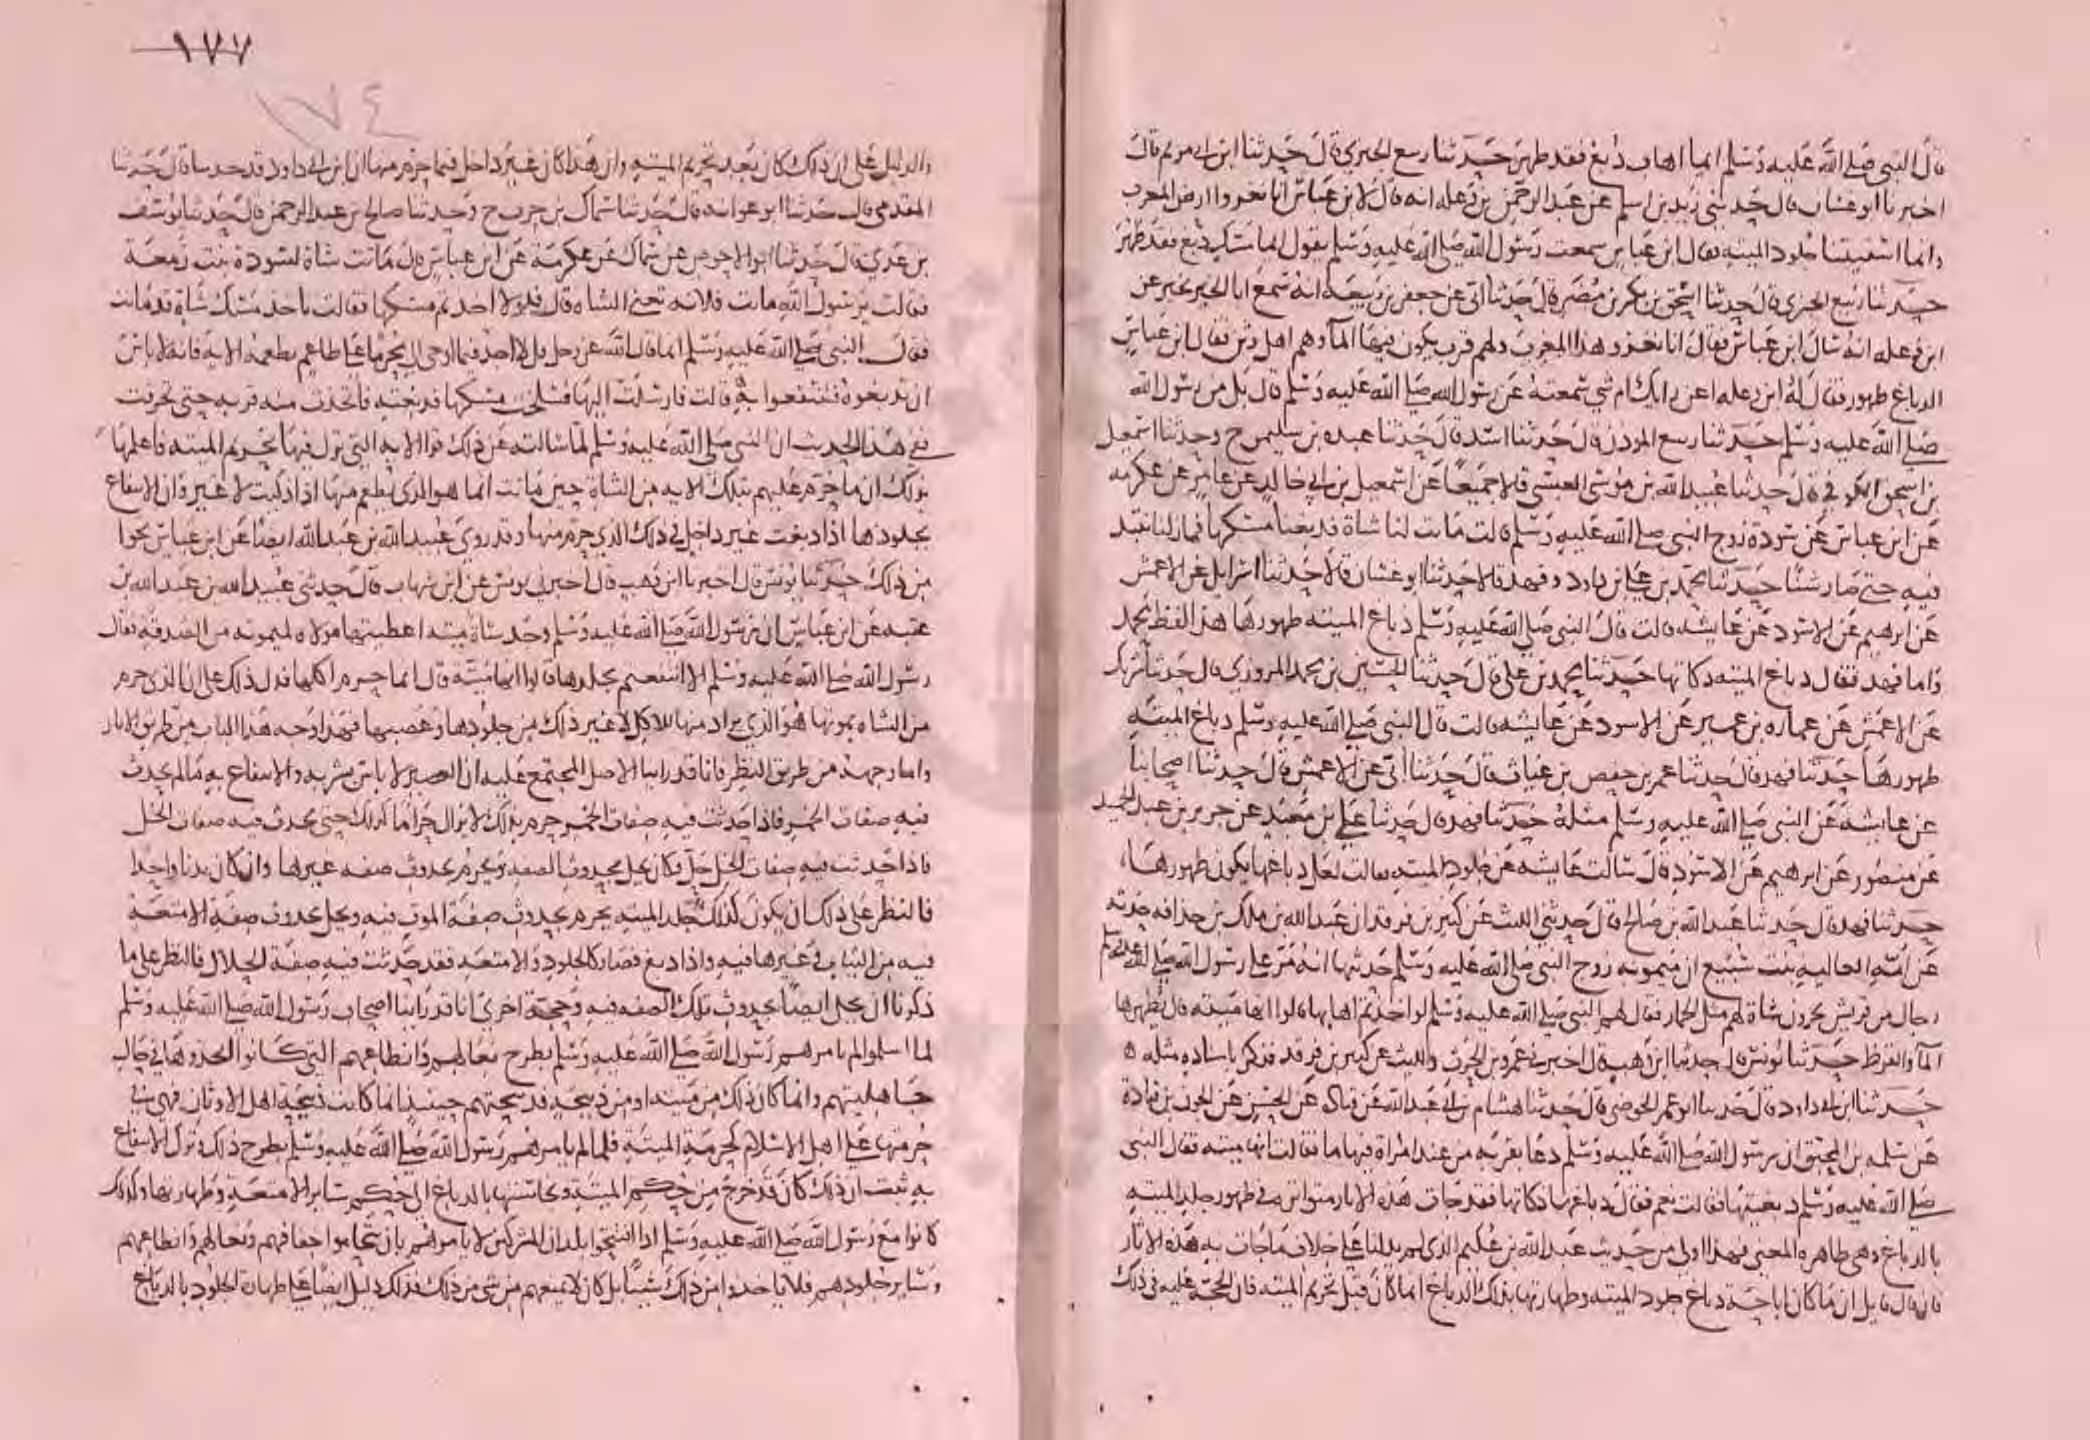 قال النبي صلى الله عليه وسلم ايما اهاب دبغ فقد طهر حدثنا ربيع الجيزي قال حدثنا ابن ابي مريم قال
اخبرنا ابو غسان قال حدثني زيد بن اسلم عن عبد الرحمن بن وعله انه قال لابن عباس انا نغزوا ارض المغرب
وانما اسقيتنا جلود الميته فقال ابن عباس سمعت رسول الله صلى الله عليه وسلم يقول ايما مسك دبغ فقد طهر
حدثنا ربيع الجيزي قال حدثنا اسحق بن بكر بن مضر قال حدثنا ابي عن جعفر بن ربيعه انه سمع ابا الخير يخبر عن
ابن وعله انه سال ابن عباس فقال انا نغزو هذا المغرب ولهم قرب يكون فيها الماء وهم اهل وثن فقال ابن عباس
الدباغ طهور فقال له ابن وعله اعن رايك ام شي سمعته عن رسول الله صلى الله عليه وسلم قال بل من رسول الله
صلى الله عليه وسلم حدثنا ربيع الموذن قال حدثنا اسد قال حدثنا عبده بن سليمن ح وحدثنا اسمعيل
بن اسحق الكوفي قال حدثنا عبيد الله بن موسى العبسي قالا جميعا عن اسمعيل بن ابي خالد عن عامر عن عكرمه
عن ابن عباس عن سودة زوج النبي صلى الله عليه وسلم قالت ماتت لنا شاة فدبغنا مسكها فما زلنا ننبذ
فيه حتى صار شنا حدثنا محمد بن علي بن داود وفهد قالا حدثنا ابو غسان قالا حدثنا اسرايل عن الاعمش
عن ابرهيم عن الاسود عن عايشه قالت قال النبي صلى الله عليه وسلم دباغ الميته طهورها هذا لفظ محمد
واما فهد فقال دباغ الميته ذكاتها حدثنا محمد بن علي قال حدثنا الحسين بن محمد المروزي قال حدثنا شريك
عن الاعمش عن عماره بن عمير عن الاسود عن عايشه قالت قال النبي صلى الله عليه وسلم دباغ الميته
طهورها حدثنا فهد قال حدثنا عمر بن حفص بن غياث قال حدثنا ابي عن الاعمش قال حدثنا اصحابنا
عن عايشة عن النبي صلى الله عليه وسلم مثله حدثنا فهد قال حدثنا علي بن معبد عن جرير بن عبد الحميد
عن منصور عن ابرهيم عن الاسود قال سالت عايشه عن جلود الميته فقالت لعل دباغها يكون طهورها
حدثنا فهد قال حدثنا عبد الله بن صالح قال حدثني الليث عن كثير بن فرقد ان عبد الله بن ملك بن حذافه حدثه
عن امه العاليه بنت سبيع ان ميمونه زوج النبي صلى الله عليه وسلم حدثتها انه مر على رسول الله صلى الله عليه وسلم
رجال من قريش يجرون شاة لهم مثل الحمار فقال لهم النبي صلى الله عليه وسلم لو اخذتم اهابها قالوا انها ميته قال يطهرها
الماء والقرظ حدثنا يونس قال حدثنا ابن وهب قال اخبرني عمرو بن الحرث والليث عن كثير بن فرقد فذكر باسناده مثله ه
حدثنا ابن ابي داود قال حدثنا ابو عمر الحوضي قال حدثنا هشام بن ابي عبد الله عن قتاده عن الحسن عن الجون بن قتادة
عن سلمه بن المحبق ان رسول الله صلى الله عليه وسلم دعا بقربه من عند امراة فيها ما فقالت انها ميته فقال النبي
صلى الله عليه وسلم دبغتها فقالت نعم فقال دباغها ذكاتها فقد جات هذه الاثار متواتره في طهور جلد الميته
بالدباغ وهي ظاهره المعنى فهذا اولى من حديث عبد الله بن عكيم الذي لم يدلنا على خلاف ما جات به هذه الاثار
فان قال قايل ان ما كان اباحة دباغ جلود الميته وطهارتها بذلك الدباغ انما كان قبل تحريم الميته فان الحجة عليه في ذلك
١٧٧
١٧٤
والدليل على ان ذلك كان بعد تحريم الميته وان هذا كان غير داخل فيما حرم منها ان ابن ابي داود قد حدثنا قال حدثنا
المقدمي قال حدثنا ابو عوانه قال حدثنا سماك بن حرب ح وحدثنا صالح بن عبد الرحمن قال حدثنا يوسف
بن عدي قال حدثنا ابو الاحوص عن سماك عن عكرمة عن ابن عباس قال ماتت شاة لسودة بنت زمعة
فقالت يرسول الله ماتت فلانه تعني الشاه قال فلولا اخذتم مسكها فقالت ناخذ مسك شاة قد ماتت
فقال النبي صلى الله عليه وسلم انما قال الله عز وجل قل لا اجد فيما اوحي الي محرما على طاعم يطعمه الايه فانه لا باس
ان تدبغوه فتنتفعوا به قالت فارسلت اليها فسلخت مسكها فدبغته فاتخذت منه قربه حتى تخرقت
ففي هذا الحديث ان النبي صلى الله عليه وسلم لما سالته عن ذلك قرا الايه التي نزل فيها تحريم الميته فاعلمها
بذلك ان ما حرم عليهم بتلك الايه من الشاة حين ماتت انما هو الذي يطعم منها اذا ذكيت لا غير وان الانتفاع
بجلودها اذا دبغت غير داخل في ذلك الذي حرم منها وقد روى عبيد الله بن عبد الله ايضا عن ابن عباس نحوا
من ذلك حدثنا يونس قال اخبرنا ابن وهب قال اخبرني يونس عن ابن شهاب قال حدثني عبيد الله بن عبد الله بن
عتبه عن ابن عباس ان رسول الله صلى الله عليه وسلم وجد شاة ميته اعطيتها مولاه لميمونه من الصدقه فقال
رسول الله صلى الله عليه وسلم الا انتفعتم بجلدها قالوا انها ميته قال انما حرم اكلها فدل ذلك على ان الذي حرم
من الشاه بموتها هو الذي يراد منها للاكل لا غير ذلك من جلودها وعصبها فهذا وجه هذا الباب من طريق الاثار
واما وجهه من طريق النظر فانا قد راينا الاصل المجتمع عليه ان العصير لا باس بشربه والانتفاع به ما لم يحدث
فيه صفات الخمر فاذا حدثت فيه صفات الخمر حرم بذلك ثم لا يزال حراما كذلك حتى يحدث فيه صفات الخل
فاذا حدثت فيه صفات الخل حل فكان يحل بحدوث الصفه ويحرم بحدوث صفه غيرها وان كان بدنا واحدا
فالنظر على ذلك ان يكون كذلك جلد الميته يحرم بحدوث صفة الموت فيه ويحل بحدوث صفة الامتعة
فيه من الثياب وغيرها فيه واذا دبغ فصار كالجلود والامتعه فقد حدثت فيه صفة الحلال فالنظر على ما
ذكرنا ان يحل ايضا بحدوث تلك الصفه فيه وحجة اخرى انا قد راينا اصحاب رسول الله صلى الله عليه وسلم
لما اسلموا لم يامرهم رسول الله صلى الله عليه وسلم بطرح نعالهم وانطاعهم التي كانوا اتخذوها في حال
جاهليتهم وانما كان ذلك من ميته او من ذبيحه فذبيحتهم حينيذ انما كانت ذبيحة اهل الاوثان فهي في
حرمتها على اهل الاسلام كحرمة الميته فلما لم يامرهم رسول الله صلى الله عليه وسلم بطرح ذلك وترك الانتفاع
به ثبت ان ذلك كان قد خرج من حكم الميته ونجاستها بالدباغ الى حكم ساير الامتعه وطهارتها وكذلك
كانوا مع رسول الله صلى الله عليه وسلم اذا افتتحوا بلدان المشركين لا يامرهم بان يتحاموا خفافهم ونعالهم وانطاعهم
وساير جلودهم فلا ياخذوا من ذلك شيئا بل كان لا يمنعهم من شي من ذلك فذلك دليل ايضا على طهارة الجلود بالدباغ